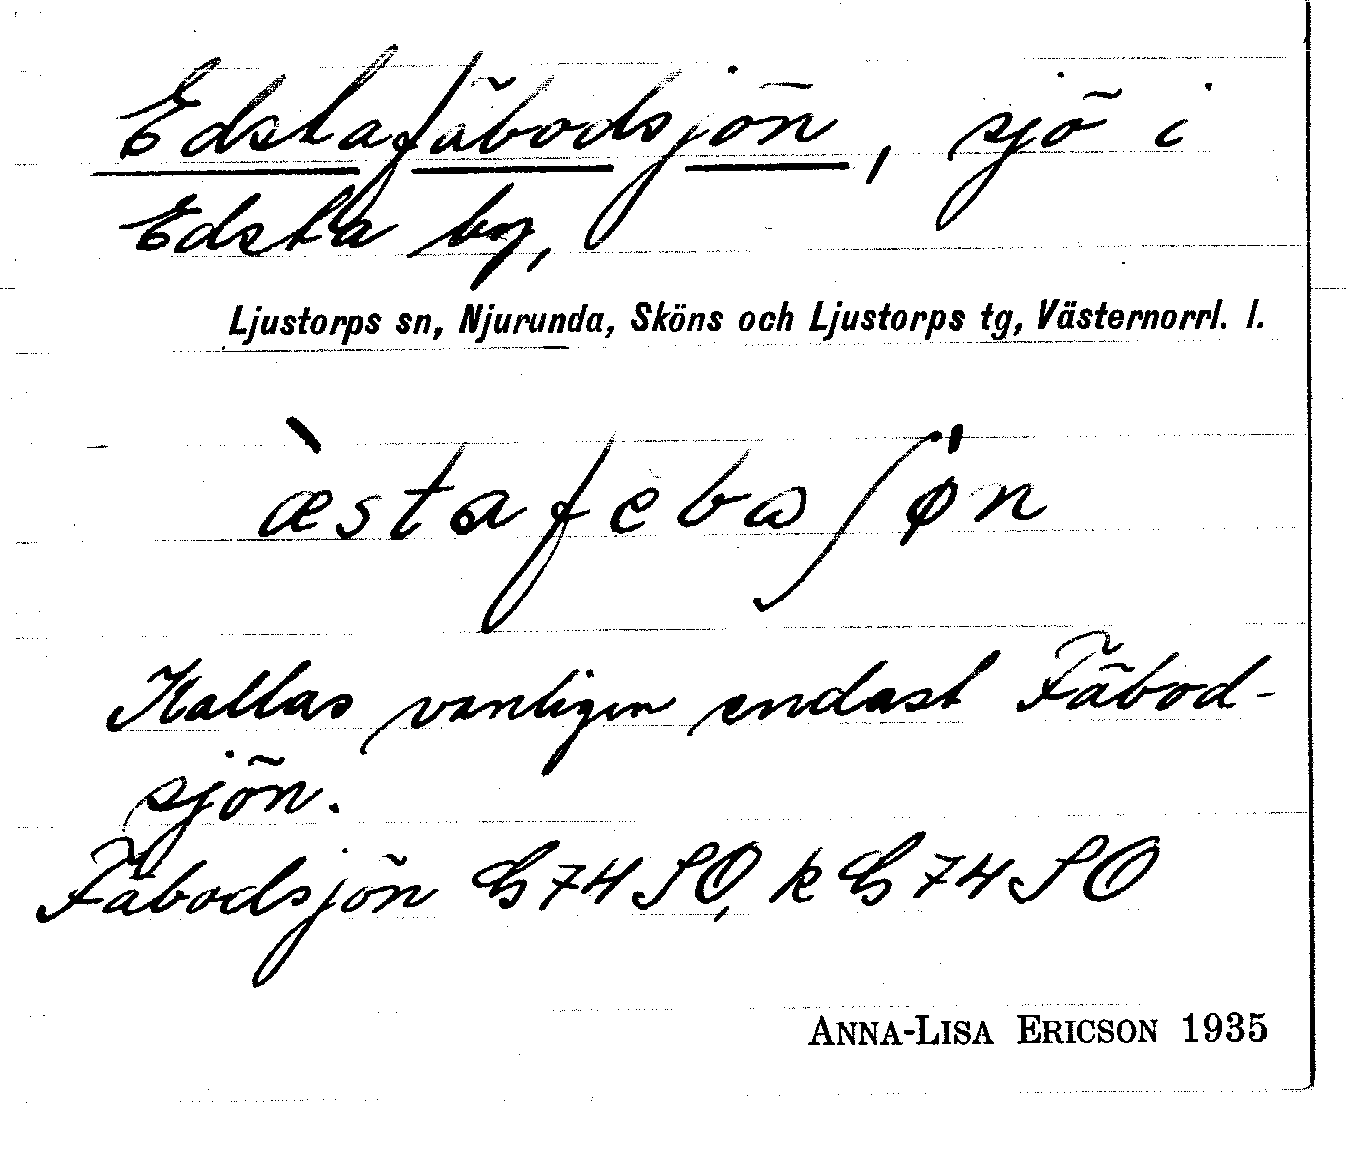 Edstafäbodsjön, sjö i
Edsta by,
Ljustorps sn, Njurunda, Sköns och Ljustorps tg, Västernorrl. l.
æ̀stafebaʃø̍n
Kallas vanligen endast Fäbod-
sjön.
Fäbodsjön G 74 SO, k G 74 SO
ANNA-LISA ERICSON 1935